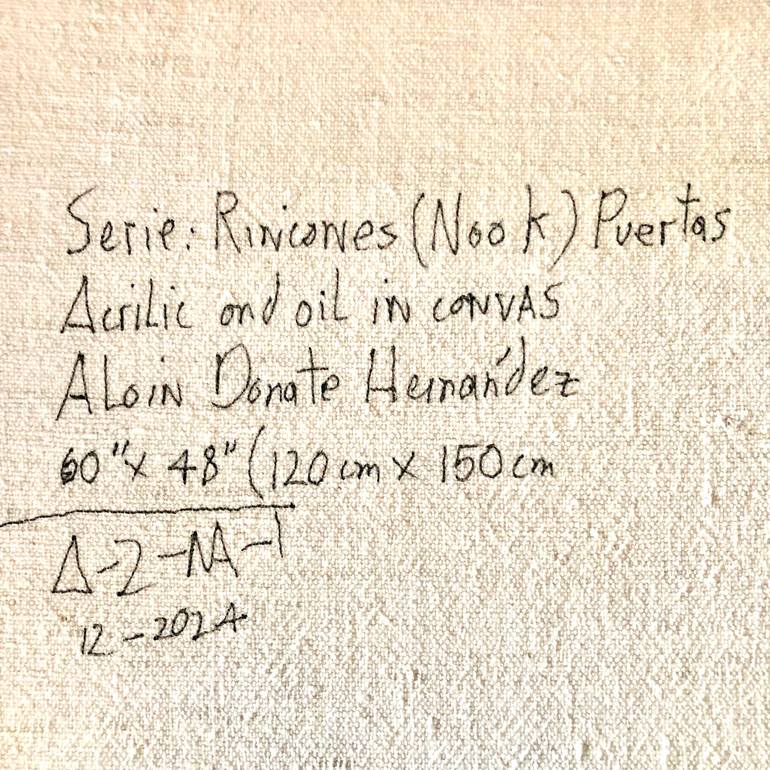 Serie: Rincones (Nook) Puertas
Acrilic and oil in canvas
Aloin Donate Hernández
60"x 48" (120 cm x 150 cm
12-2024